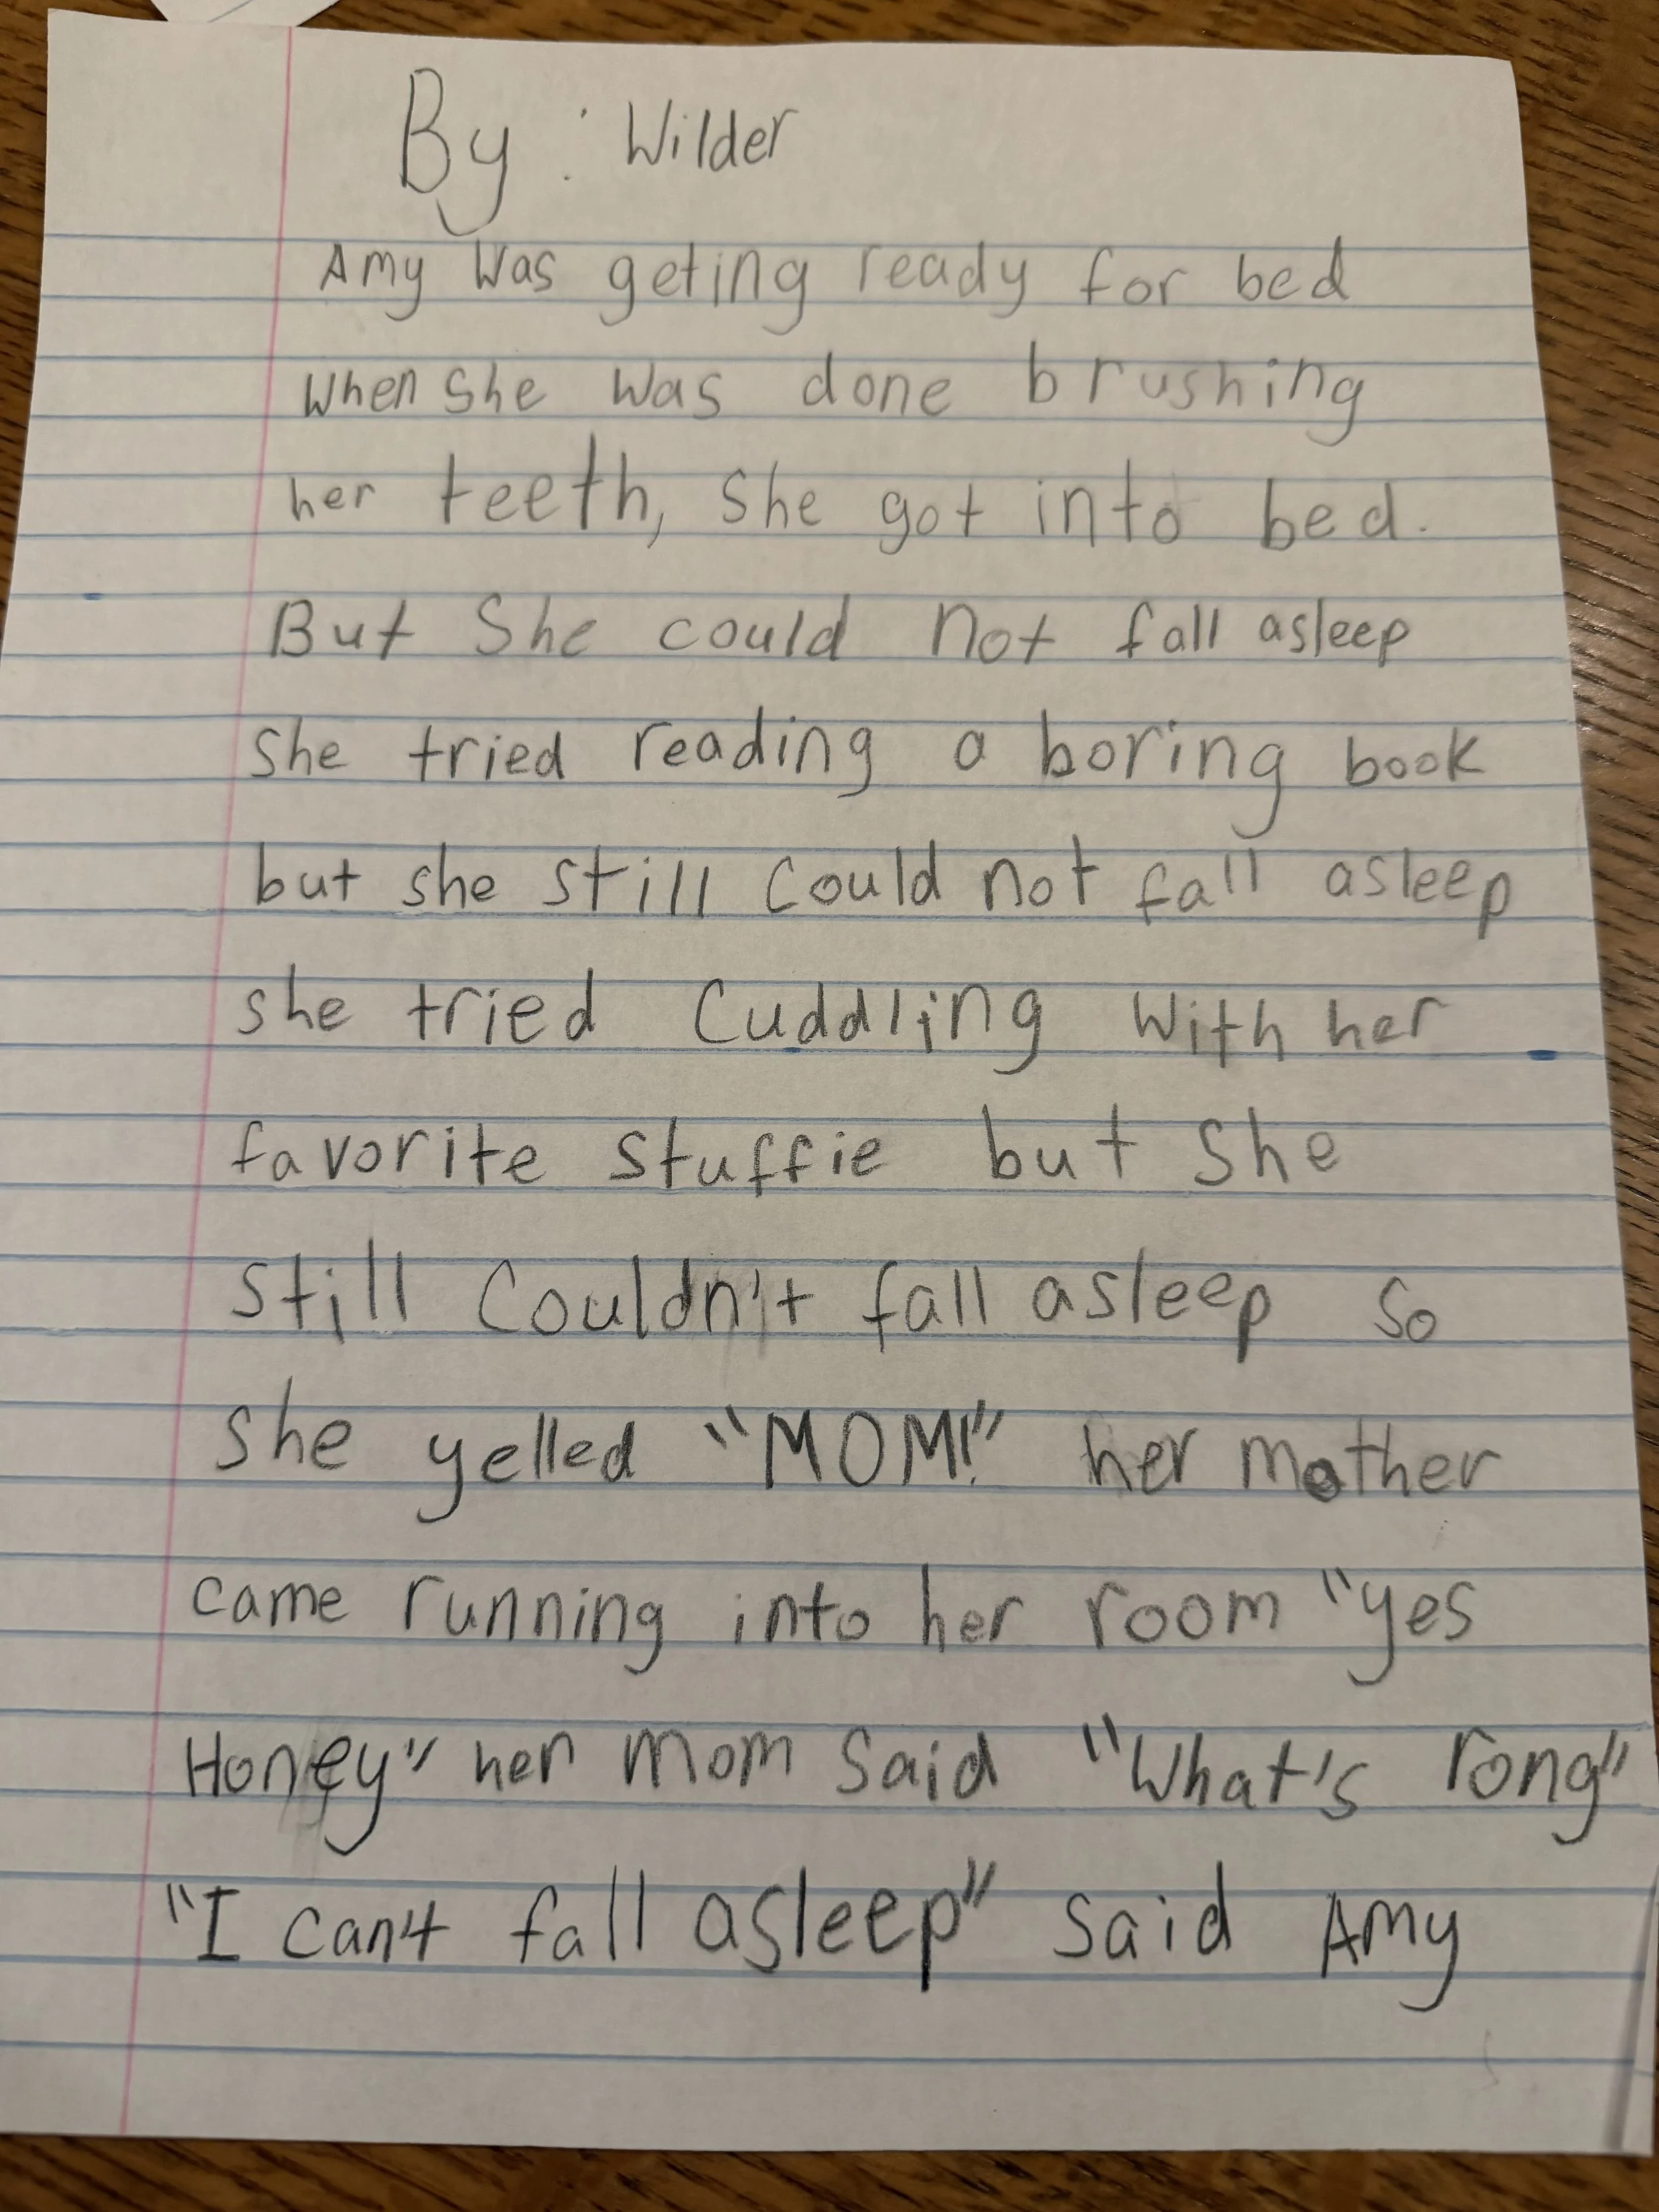 By: Wilder
Amy was geting ready for bed
when she was done brushing
her teeth, she got into bed.
But She could not fall asleep
she tried reading a boring book
but she still could not fall asleep
she tried cuddling with her
favorite stuffie but she
still couldn't fall asleep so
she yelled "MOM!" her mother
came running into her room "yes
Honey" her mom said "What's rong"
"I can't fall asleep" said Amy